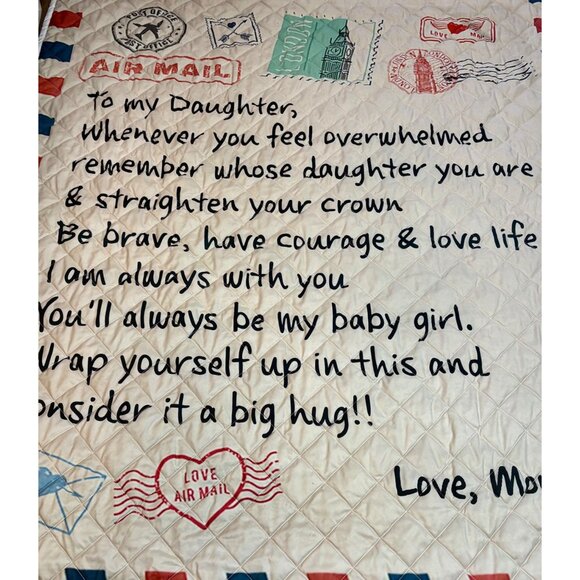 POST OFFICE
LONDON
LOVE MAIL
AIR MAIL
To my Daughter,
Whenever you feel overwhelmed
remember whose daughter you are
& straighten your crown
Be brave, have courage & love life
I am always with you
You'll always be my baby girl.
Wrap yourself up in this and
onsider it a big hug!!
LOVE
AIR MAIL
Love, Mo